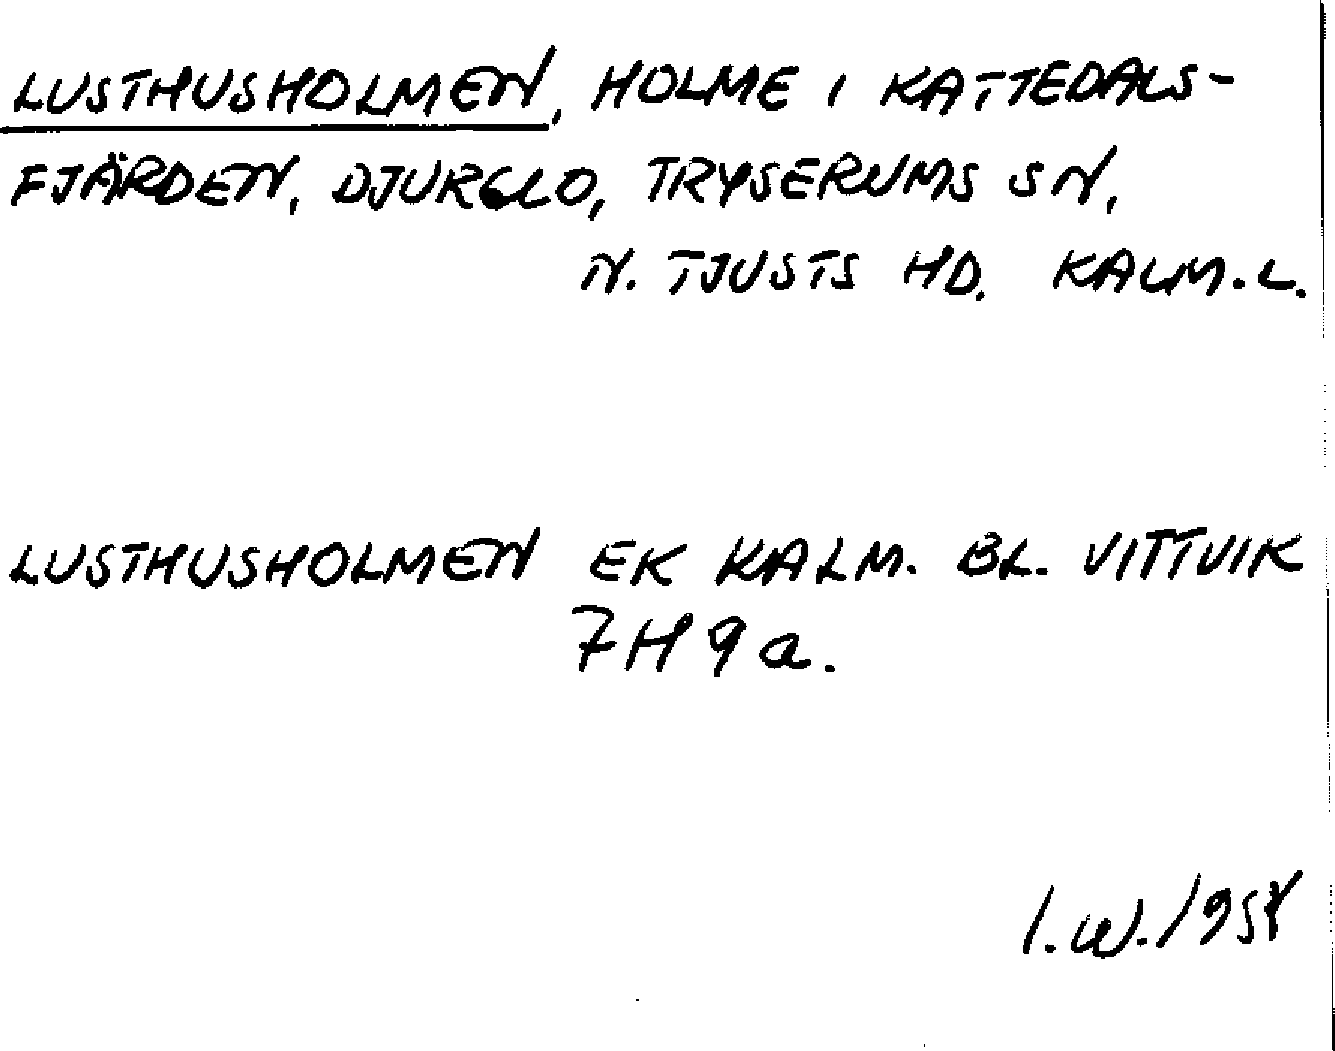 LUSTHUSHOLMEN, HOLME I KATTEDALS-
FJÄRDEN, DJURGLO, TRYSERUMS SN,
N. TJUSTS HD. KALM. L.
LUSTHUSHOLMEN EK KALM. BL. VITTVIK
7H 9a.
I.W.